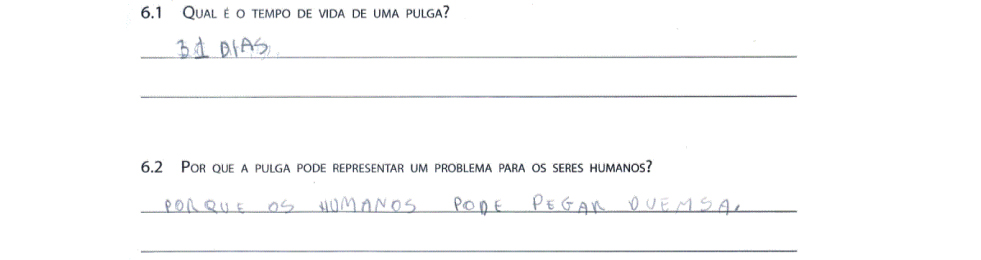 6.1 QUAL É O TEMPO DE VIDA DE UMA PULGA?
31 DIAS.
6.2 POR QUE A PULGA PODE REPRESENTAR UM PROBLEMA PARA OS SERES HUMANOS?
PORQUE OS HUMANOS PODE PEGAR DUEMSA.